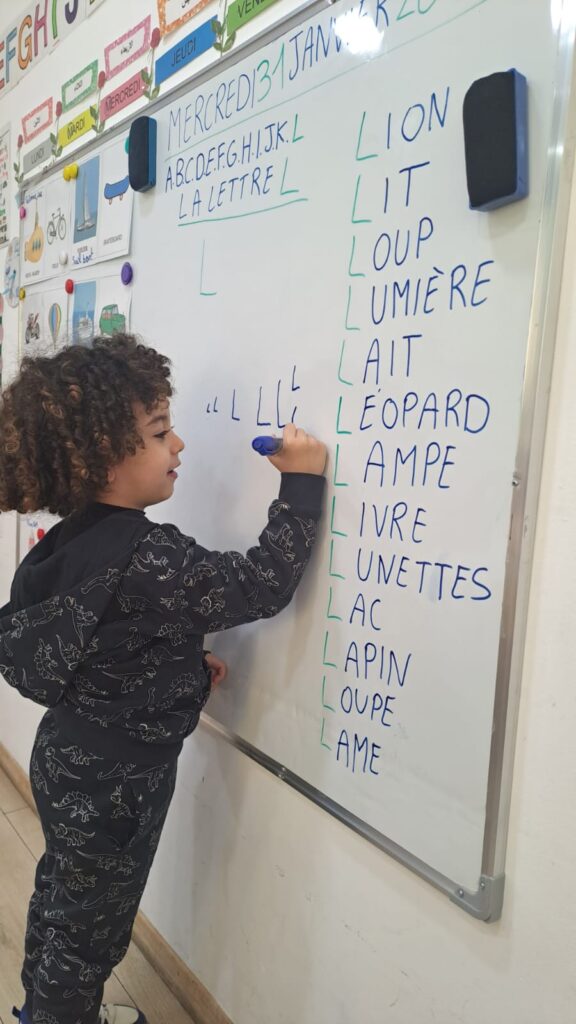 EFGHI
LUNDI
MARDI
MERCREDI
JEUDI
MERCREDI 31 JANVIER 20
A.B.C.D.E.F.G.H.I.J.K.L
LA LETTRE L
L
L L L L
LION
LIT
LOUP
LUMIÈRE
LAIT
LÉOPARD
LAMPE
LIVRE
LUNETTES
LAC
LAPIN
LOUPE
LAME